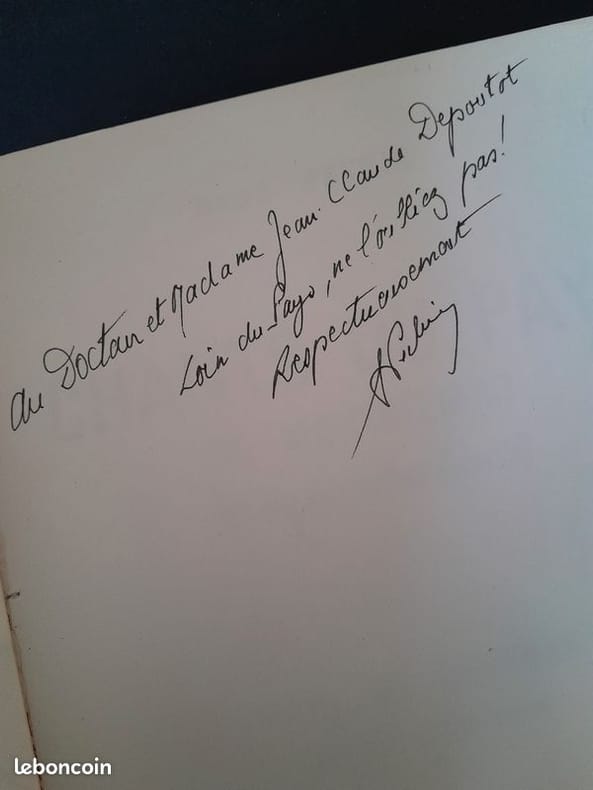 au Docteur et Madame Jean-Claude Depoutot
Loin du Pays, ne l'oubliez pas!
Respectueusement
leboncoin